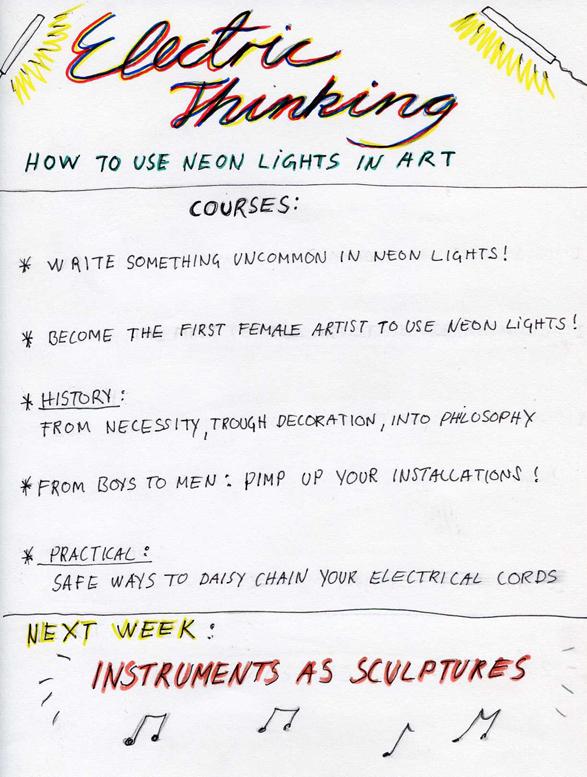 Electric
Thinking
HOW TO USE NEON LiGHTS IN ART
COURSES:
* WRITE SOMETHING UNCOMMON IN NEON LIGHTS!
* BECOME THE FIRST FEMALE ARTIST TO USE NEON LiGHTS!
* HISTORY:
FROM NECESSITY, TROUGH DECORATION, INTO PHiLOSOPHY
* FROM BOYS TO MEN: PIMP UP YOUR INSTALLATIONS!
* PRACTICAL:
SAFE WAYS TO DAISY CHAIN YOUR ELECTRICAL CORDS
NEXT WEEK:
INSTRUMENTS AS SCULPTURES